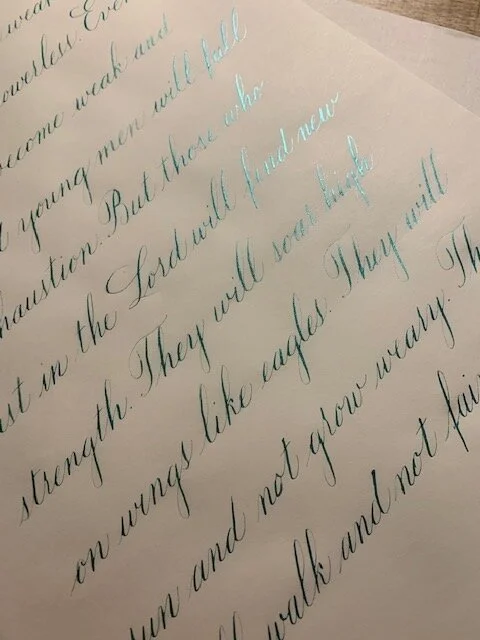 Eve
become weak and
young men will fall
But those who
in the Lord will find new
strength. They will soar high
on wings like eagles. They will
and not grow weary.
walk and not